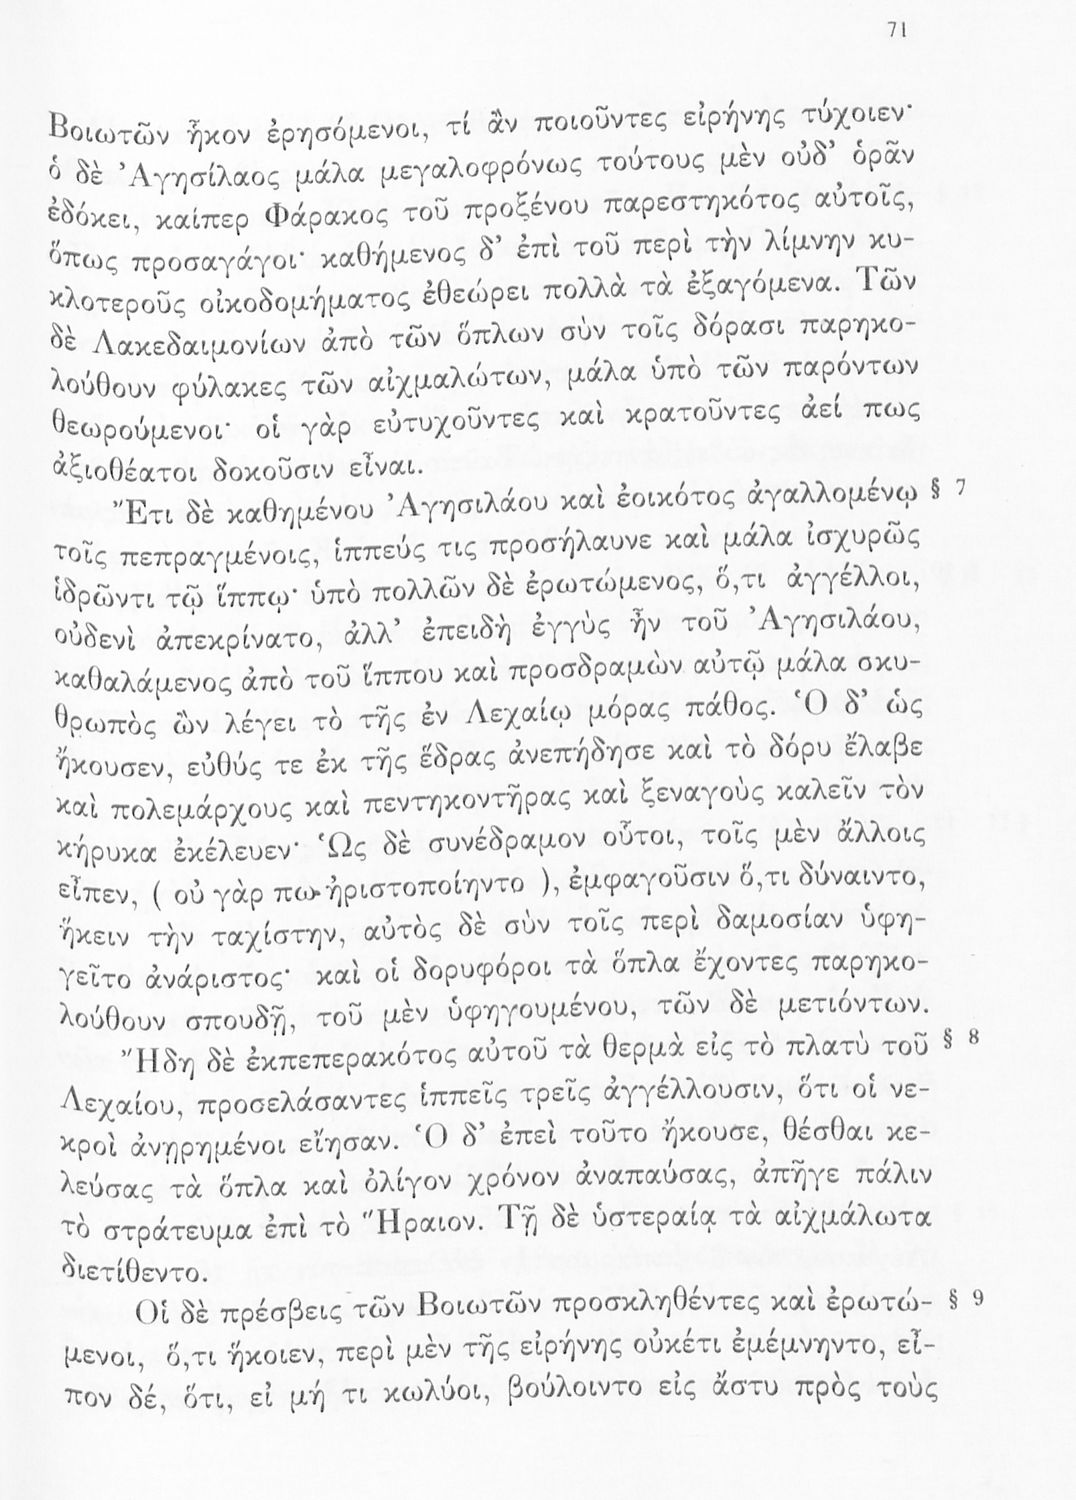 71
Βοιωτῶν ἦκον ἐρησόμενοι, τί ἂν ποιοῦντες εἰρήνης τύχοιεν·
ὁ δὲ Ἀγησίλαος μάλα μεγαλοφρόνως τούτους μὲν οὐδ’ ὁρᾶν
ἐδόκει, καίπερ Φάρακος τοῦ προξένου παρεστηκότος αὐτοῖς,
ὅπως προσαγάγοι· καθήμενος δ’ ἐπὶ τοῦ περὶ τὴν λίμνην κυ-
κλοτεροῦς οἰκοδομήματος ἐθεώρει πολλὰ τὰ ἐξαγόμενα. Τῶν
δὲ Λακεδαιμονίων ἀπὸ τῶν ὅπλων σὺν τοῖς δόρασι παρηκο-
λούθουν φύλακες τῶν αἰχμαλώτων, μάλα ὑπὸ τῶν παρόντων
θεωρούμενοι· οἱ γὰρ εὐτυχοῦντες καὶ κρατοῦντες ἀεί πως
ἀξιοθέατοι δοκοῦσιν εἶναι.
Ἔτι δὲ καθημένου Ἀγησιλάου καὶ ἐοικότος ἀγαλλομένῳ § 7
τοῖς πεπραγμένοις, ἱππεύς τις προσήλαυνε καὶ μάλα ἰσχυρῶς
ἱδρῶντι τῷ ἵππῳ· ὑπὸ πολλῶν δὲ ἐρωτώμενος, ὅ,τι ἀγγέλλοι,
οὐδενὶ ἀπεκρίνατο, ἀλλ’ ἐπειδὴ ἐγγὺς ἦν τοῦ Ἀγησιλάου,
καθαλάμενος ἀπὸ τοῦ ἵππου καὶ προσδραμὼν αὐτῷ μάλα σκυ-
θρωπὸς ὢν λέγει τὸ τῆς ἐν Λεχαίῳ μόρας πάθος. Ὁ δ’ ὡς
ἤκουσεν, εὐθύς τε ἐκ τῆς ἕδρας ἀνεπήδησε καὶ τὸ δόρυ ἔλαβε
καὶ πολεμάρχους καὶ πεντηκοντῆρας καὶ ξεναγοὺς καλεῖν τὸν
κήρυκα ἐκέλευεν· Ὡς δὲ συνέδραμον οὗτοι, τοῖς μὲν ἄλλοις
εἶπεν, ( οὐ γὰρ πω ἠριστοποίηντο ), ἐμφαγοῦσιν ὅ,τι δύναιντο,
ἥκειν τὴν ταχίστην, αὐτὸς δὲ σὺν τοῖς περὶ δαμοσίαν ὑφη-
γεῖτο ἀνάριστος· καὶ οἱ δορυφόροι τὰ ὅπλα ἔχοντες παρηκο-
λούθουν σπουδῇ, τοῦ μὲν ὑφηγουμένου, τῶν δὲ μετιόντων.
Ἤδη δὲ ἐκπεπερακότος αὐτοῦ τὰ θερμὰ εἰς τὸ πλατὺ τοῦ § 8
Λεχαίου, προσελάσαντες ἱππεῖς τρεῖς ἀγγέλλουσιν, ὅτι οἱ νε-
κροὶ ἀνῃρημένοι εἴησαν. Ὁ δ’ ἐπεὶ τοῦτο ἤκουσε, θέσθαι κε-
λεύσας τὰ ὅπλα καὶ ὀλίγον χρόνον ἀναπαύσας, ἀπῆγε πάλιν
τὸ στράτευμα ἐπὶ τὸ Ἥραιον. Τῇ δὲ ὑστεραίᾳ τὰ αἰχμάλωτα
διετίθεντο.
Οἱ δὲ πρέσβεις τῶν Βοιωτῶν προσκληθέντες καὶ ἐρωτώ- § 9
μενοι, ὅ,τι ἥκοιεν, περὶ μὲν τῆς εἰρήνης οὐκέτι ἐμέμνηντο, εἶ-
πον δέ, ὅτι, εἰ μή τι κωλύοι, βούλοιντο εἰς ἄστυ πρὸς τοὺς